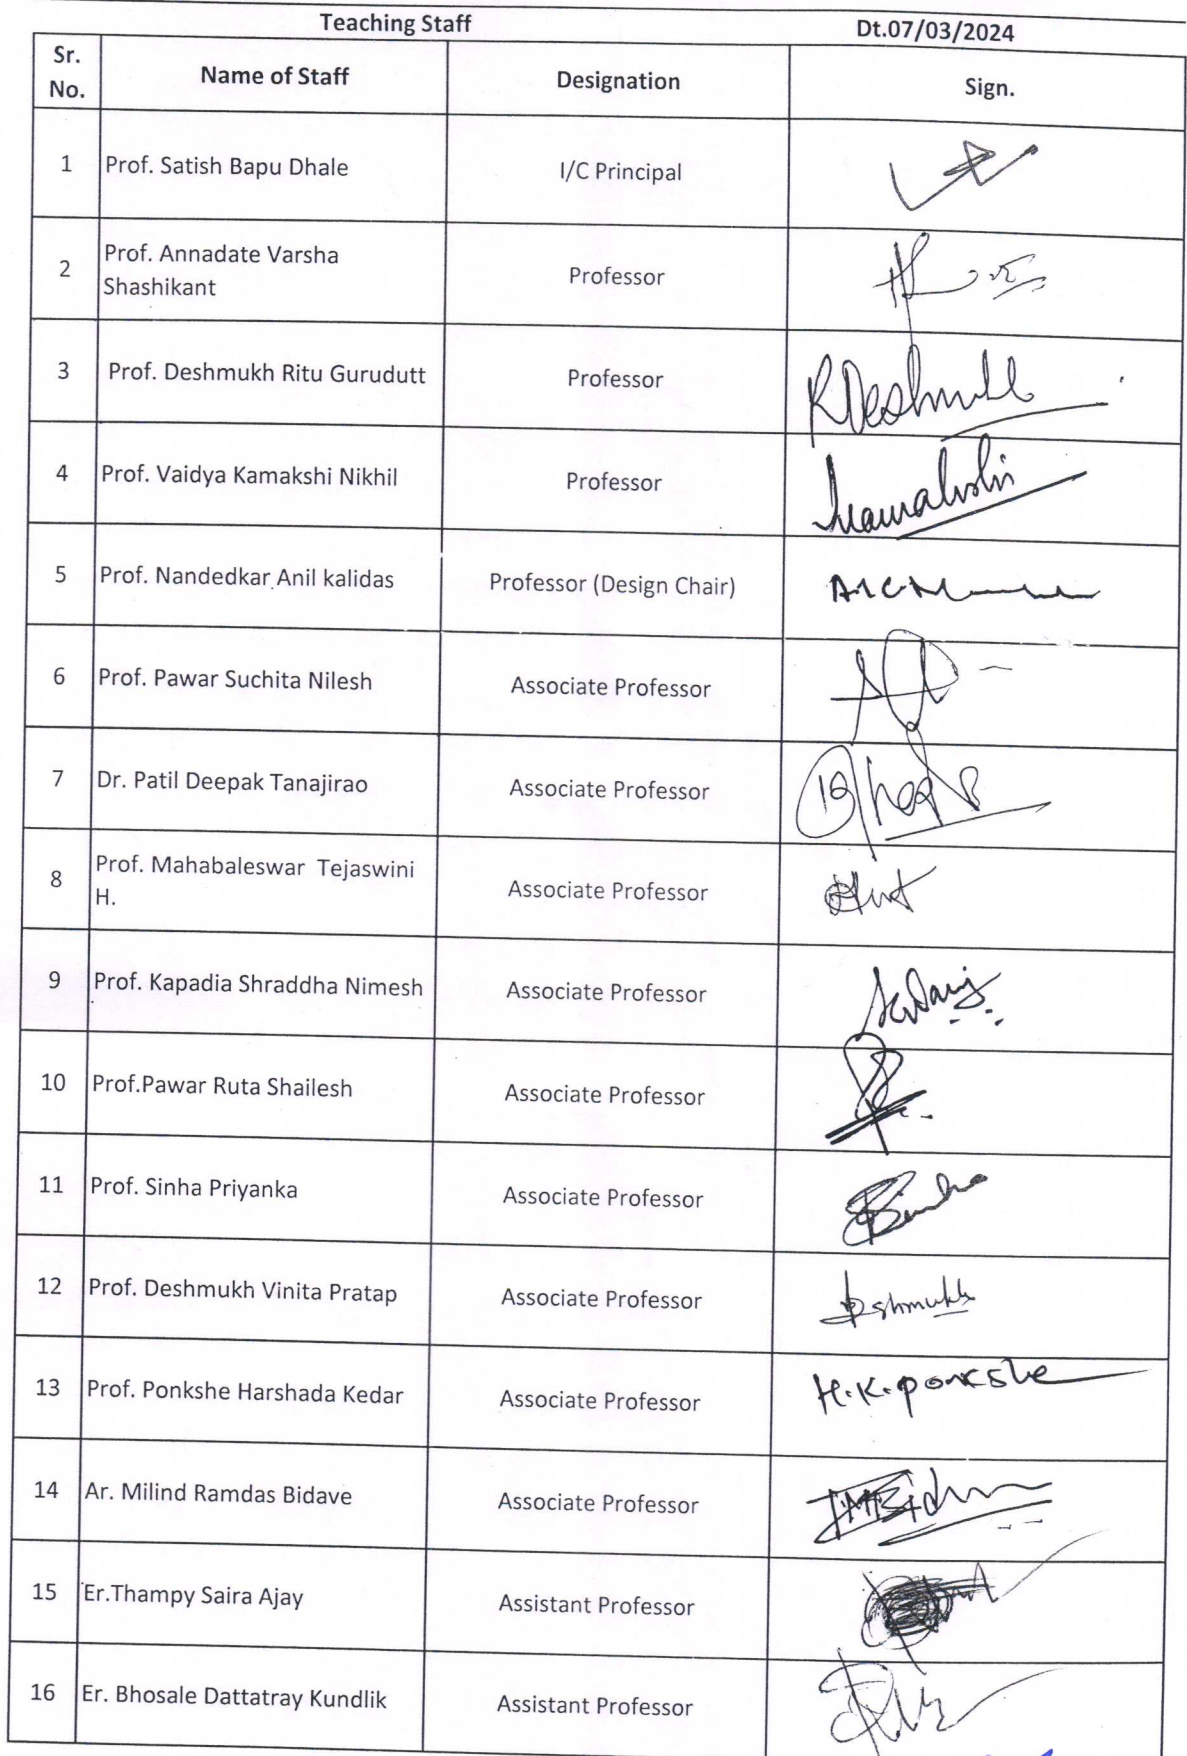 Teaching Staff Dt.07/03/2024
Sr. No. Name of Staff Designation Sign.
1 Prof. Satish Bapu Dhale I/C Principal
2 Prof. Annadate Varsha
Shashikant Professor
3 Prof. Deshmukh Ritu Gurudutt Professor RDeshmukh
4 Prof. Vaidya Kamakshi Nikhil Professor
5 Prof. Nandedkar Anil kalidas Professor (Design Chair)
6 Prof. Pawar Suchita Nilesh Associate Professor
7 Dr. Patil Deepak Tanajirao Associate Professor
8 Prof. Mahabaleswar Tejaswini
H. Associate Professor
9 Prof. Kapadia Shraddha Nimesh Associate Professor
10 Prof.Pawar Ruta Shailesh Associate Professor
11 Prof. Sinha Priyanka Associate Professor
12 Prof. Deshmukh Vinita Pratap Associate Professor
13 Prof. Ponkshe Harshada Kedar Associate Professor H.K.Ponkshe
14 Ar. Milind Ramdas Bidave Associate Professor
15 Er.Thampy Saira Ajay Assistant Professor
16 Er. Bhosale Dattatray Kundlik Assistant Professor